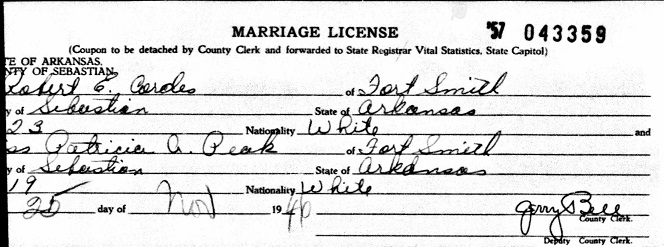 MARRIAGE LICENSE '57 043359
(Coupon to be detached by County Clerk and forwarded to State Registrar Vital Statistics, State Capitol)
TE OF ARKANSAS,
NTY OF SEBASTIAN,
Robert E. Cordes of Fort Smith
y of Sebastian State of Arkansas
23 Nationality White and
ss Patricia A. Peak of Fort Smith
y of Sebastian State of Arkansas
19 Nationality White
25 day of Nov 1946
Jerry Bell
County Clerk.
Deputy County Clerk.